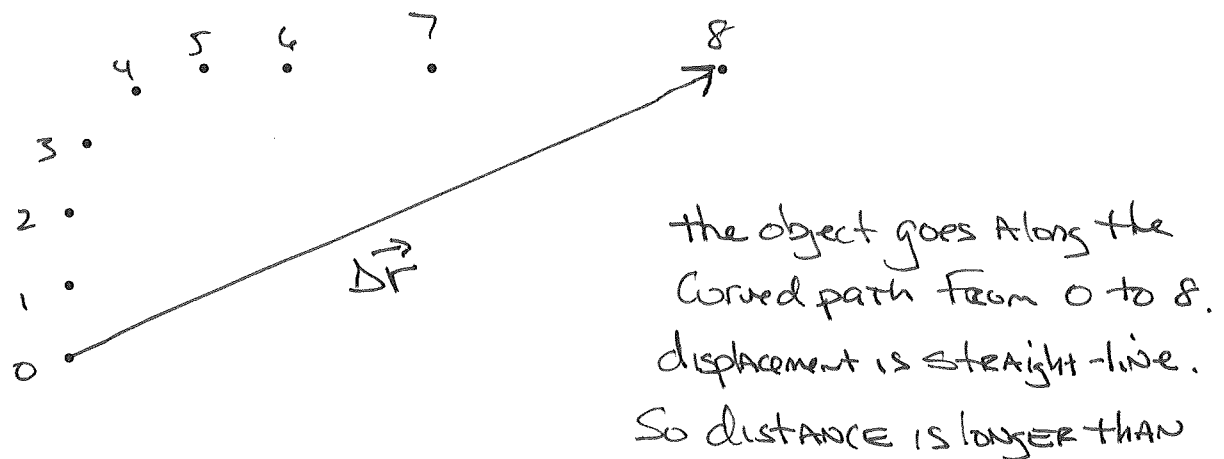 7
8
5
6
4
3
2
1
0
Δr⃗
the object goes Along the
Curved path From 0 to 8.
displacement is straight-line.
So distANCE is longer than